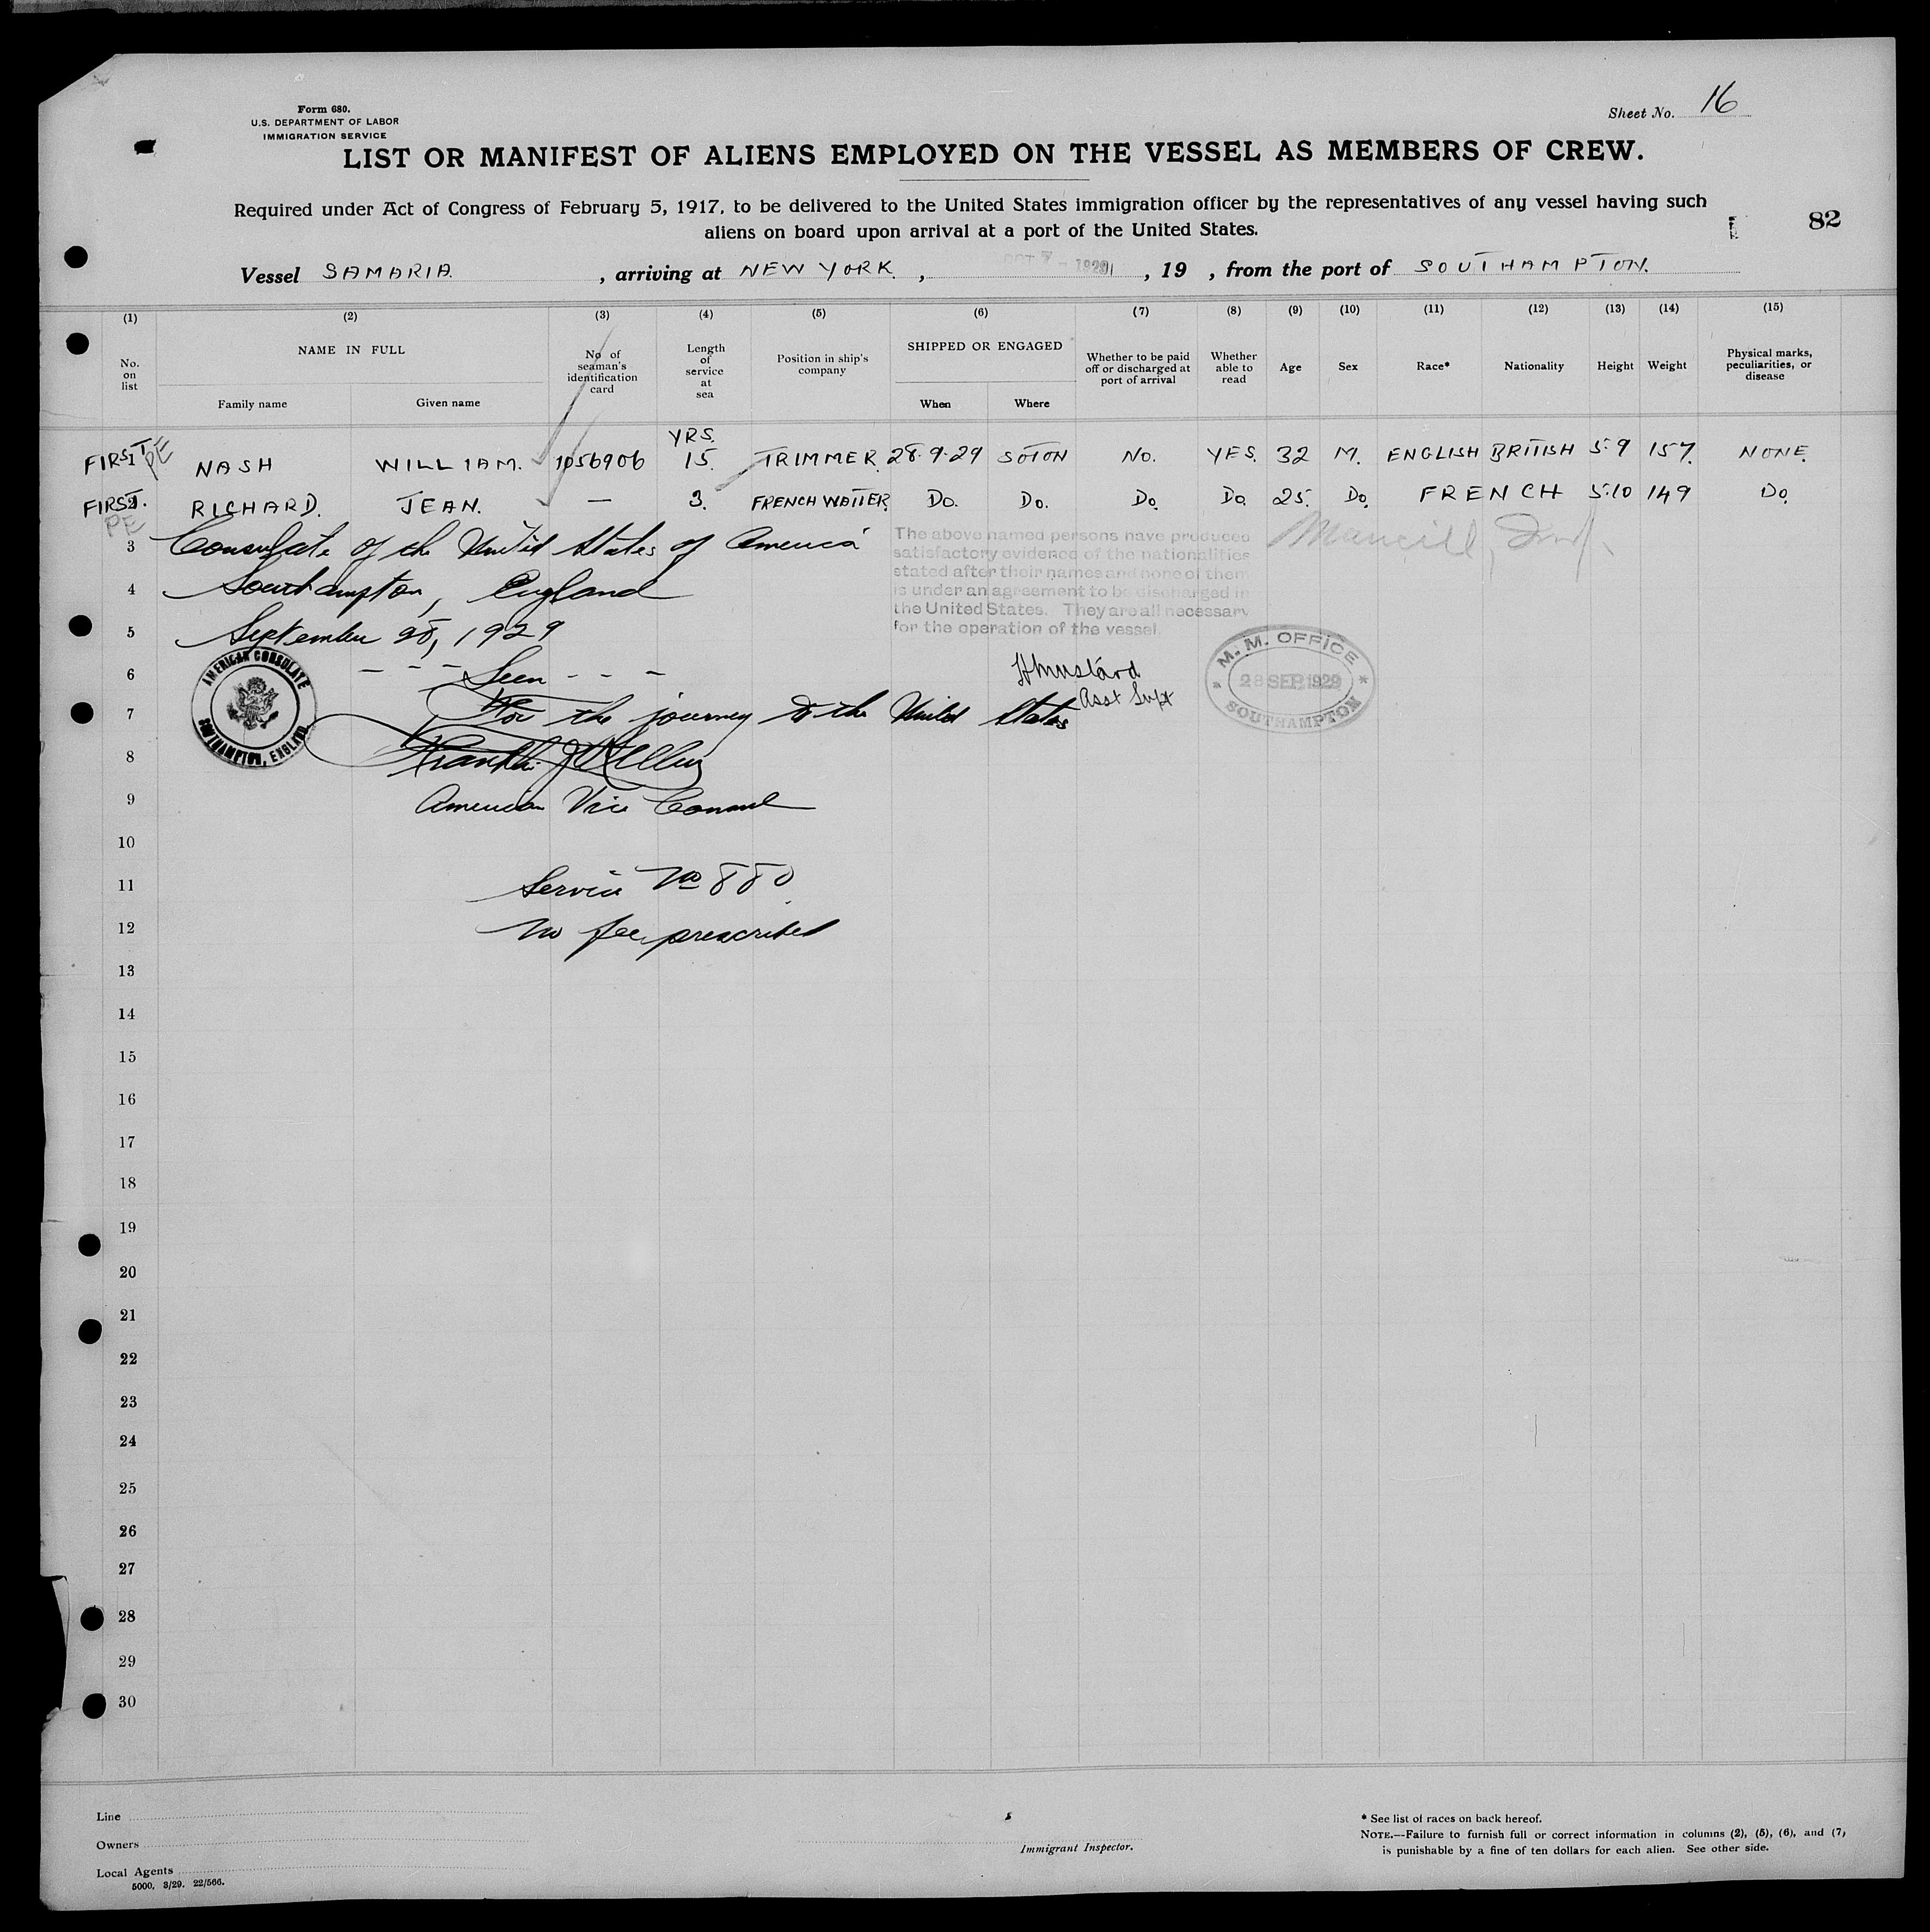 Form 680.
U.S. DEPARTMENT OF LABOR
IMMIGRATION SERVICE
Sheet No. 16
LIST OR MANIFEST OF ALIENS EMPLOYED ON THE VESSEL AS MEMBERS OF CREW.
Required under Act of Congress of February 5, 1917, to be delivered to the United States immigration officer by the representatives of any vessel having such
aliens on board upon arrival at a port of the United States.
82
Vessel SAMARIA. , arriving at NEW YORK. , OCT 7 - 1929 , 19 , from the port of SOUTHAMPTON.
(1) (2) (3) (4) (5) (6) (7) (8) (9) (10) (11) (12) (13) (14) (15)
No. on list
NAME IN FULL
Family name Given name
No of seaman's identification card
Length of service at sea
Position in ship's company
SHIPPED OR ENGAGED
When Where
Whether to be paid off or discharged at port of arrival
Whether able to read
Age Sex Race* Nationality Height Weight
Physical marks, peculiarities, or disease
YRS.
FIRST 1 PE NASH WILLIAM. 1056906 15. TRIMMER. 28.9.29 SOTON NO. YES. 32 M. ENGLISH BRITISH 5.9 157. NONE.
FIRST. 2 PE RICHARD. JEAN. — 3. FRENCH WAITER. DO. DO. DO. DO. 25. DO. FRENCH 5.10 149 DO.
3 Consulate of the United States of America
4 Southampton, England
5 September 28, 1929
6 - - - Seen - - -
7 For the journey to the United States
8 Franklin
9 American Vice Consul
10
11 Service No 880
12 No fee prescribed
13
14
15
16
17
18
19
20
21
22
23
24
25
26
27
28
29
30
The above named persons have produced
satisfactory evidence of the nationalities
stated after their names and none of them
is under an agreement to be discharged in
the United States. They are all necessary
for the operation of the vessel.
H Mustard
Asst Supt
M. M. OFFICE
28 SEP 1929
SOUTHAMPTON
AMERICAN CONSULATE
SOUTHAMPTON, ENGLAND
Line
Owners
Local Agents
5000. 3/29. 22/566.
Immigrant Inspector.
* See list of races on back hereof.
NOTE.—Failure to furnish full or correct information in columns (2), (5), (6), and (7)
is punishable by a fine of ten dollars for each alien. See other side.